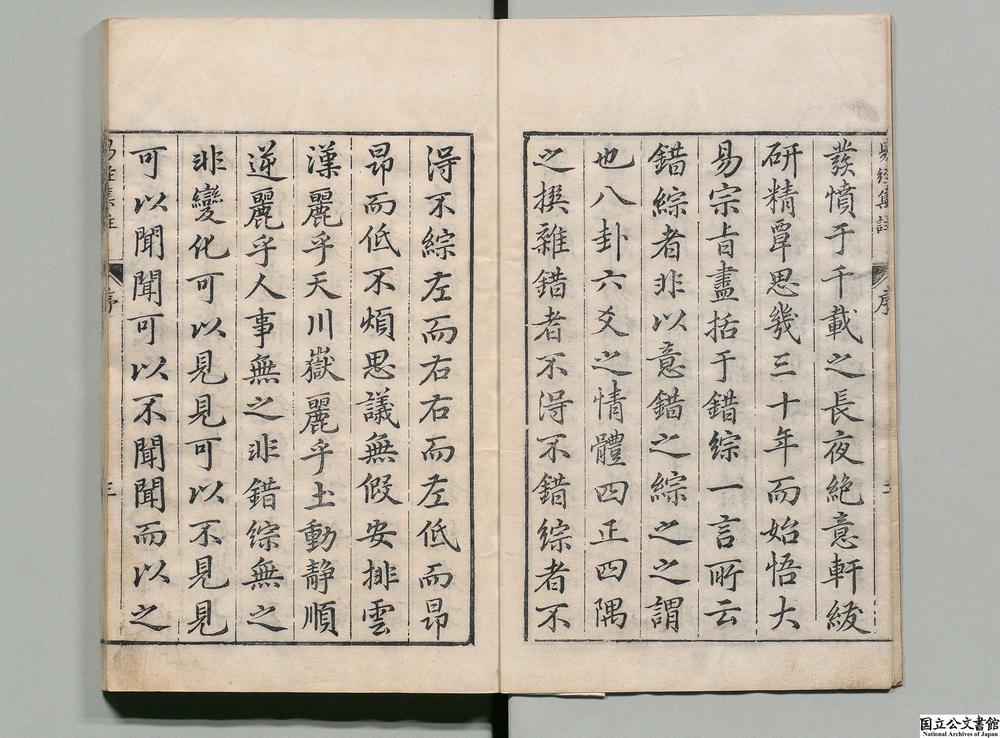 發憤于千載之長夜絶意軒綾
研精覃思幾三十年而始悟大
易宗旨盡括于錯綜一言所云
錯綜者非以意錯之綜之之謂
也八卦六爻之情體四正四隅
之撰雜錯者不淂不錯綜者不
淂不綜左而右右而左低而昂
昂而低不煩思議無假安排雲
漢麗乎天川嶽麗乎土動静順
逆麗乎人事無之非錯綜無之
非變化可以見見可以不見見
可以聞聞可以不聞聞而以之
序
序
三
国立公文書館
National Archives of Japan